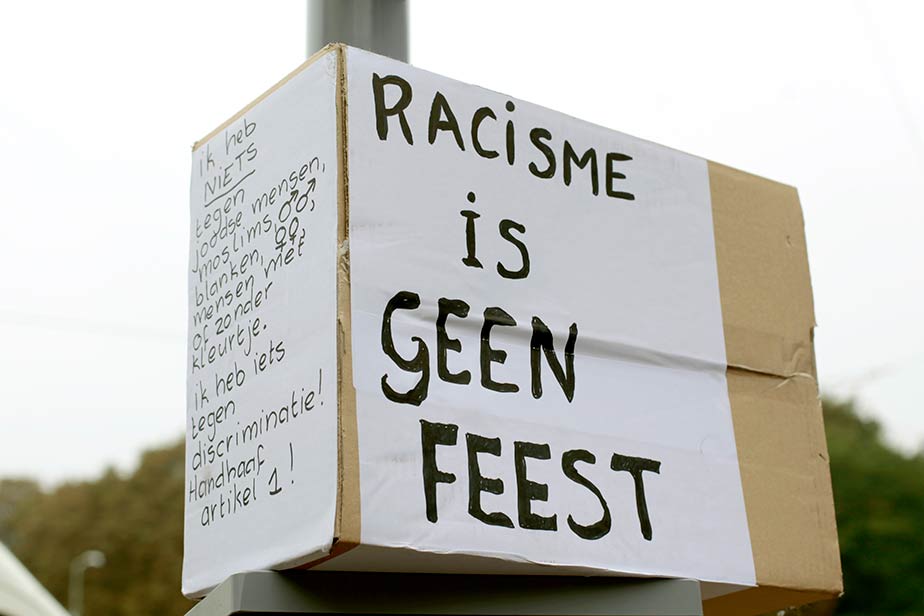 ik heb
NiETS
tegen
joodse mensen,
moslims ♂♂,
blanken, ♀♀,
mensen met
of zonder
kleurtje.
ik heb iets
tegen
discriminatie!
Handhaaf
artikel 1!
RACiSME
iS
GEEN
FEEST